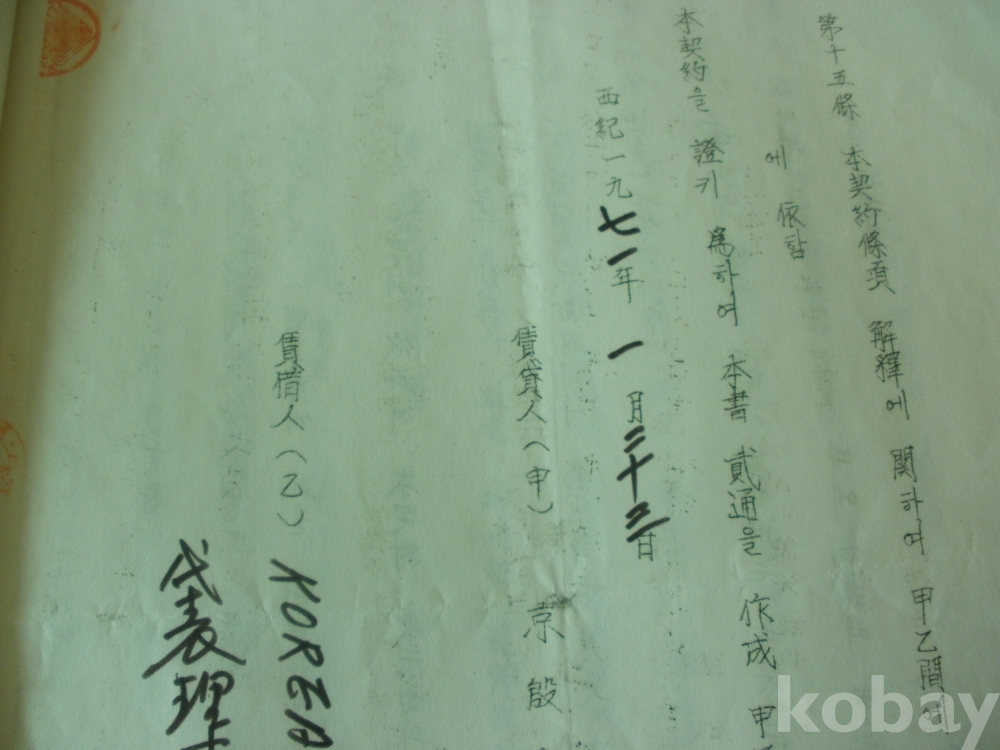 第十五條 本契約條項 解釋에 関하여 甲乙間에
에 依함
本契約을 證키 爲하여 本書 貳通을 作成 甲
西紀一九七一年 一月二十三日
賃貸人(甲) 京殷
賃借人(乙) KOREA
代表理
kobay